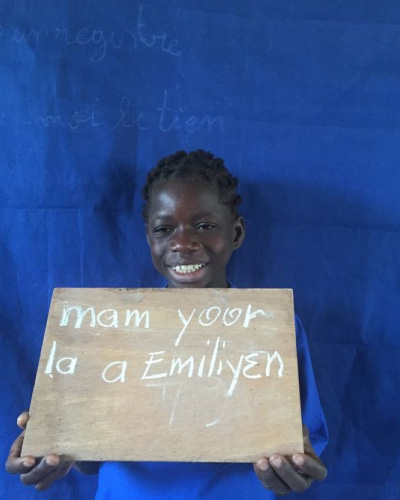 un registre
moi le tien
mam yoor
la a Emiliyɛn